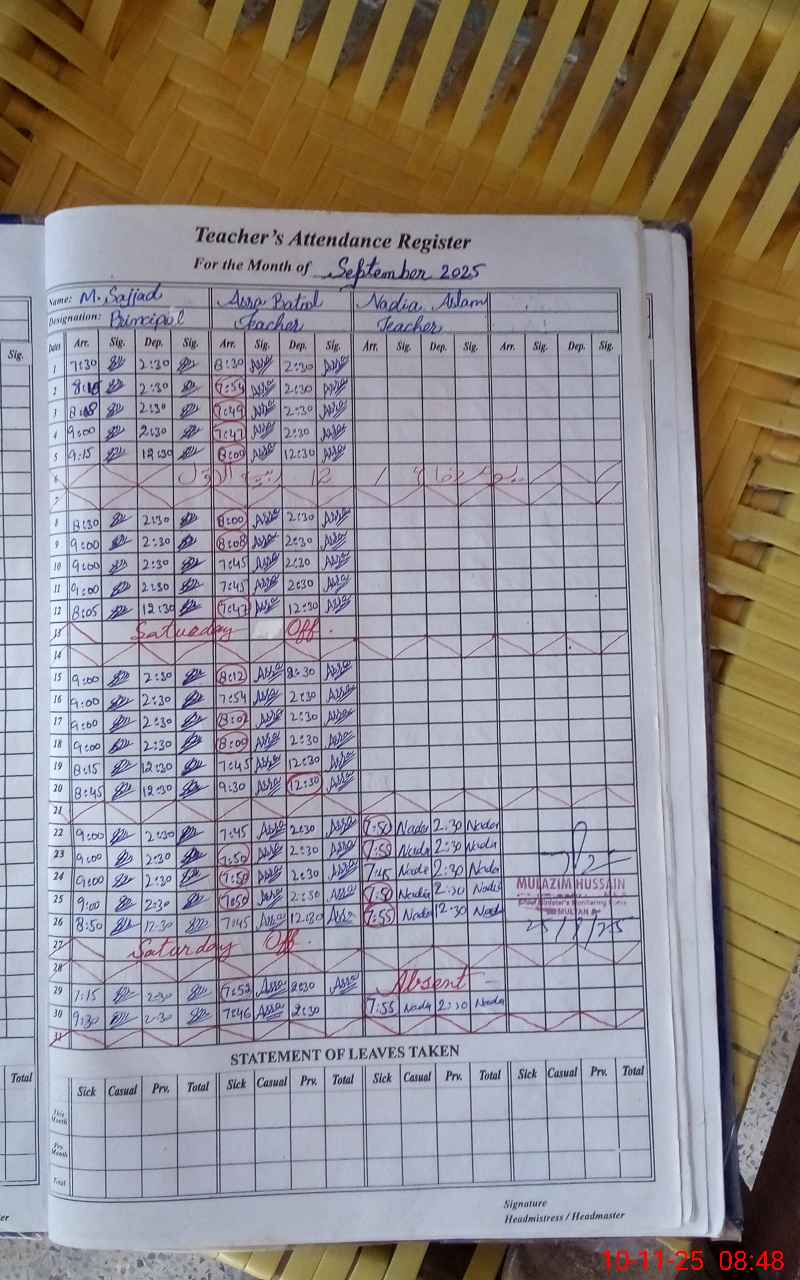 Teacher's Attendance Register
For the Month of September 2025
Name: M. Sajjad Asra Batool Nadia Aslam
Designation: Principal Teacher Teacher
Dates Arr. Sig. Dep. Sig. Arr. Sig. Dep. Sig. Arr. Sig. Dep. Sig. Arr. Sig. Dep. Sig.
1 7:30 2:30 8:30 Asra 2:30 Asra
2 2:30 7:54 Asra 2:30 Asra
3 2:30 7:49 Asra 2:30 Asra
4 9:00 2:30 7:47 Asra 2:30 Asra
5 9:15 12:30 8:00 Asra 12:30 Asra
6 12 ربیع الاول
7
8 8:30 2:30 8:00 Asra 2:30 Asra
9 9:00 2:30 8:08 Asra 2:30 Asra
10 9:00 2:30 7:45 Asra 2:30 Asra
11 9:00 2:30 7:45 Asra 2:30 Asra
12 8:05 12:30 7:47 Asra 12:30 Asra
13 Saturday Off.
14
15 9:00 2:30 8:12 Asra 2:30 Asra
16 9:00 2:30 7:54 Asra 2:30 Asra
17 9:00 2:30 8:02 Asra 2:30 Asra
18 9:00 2:30 8:09 Asra 2:30 Asra
19 8:15 12:30 7:45 Asra 12:30 Asra
20 8:45 12:30 9:30 Asra 12:30 Asra
21
22 9:00 2:30 7:45 Asra 2:30 Asra 7:50 Nadia 2:30 Nadia
23 9:00 2:30 7:50 Asra 2:30 Asra 7:50 Nadia 2:30 Nadia
24 9:00 2:30 7:50 Asra 2:30 Asra 7:45 Nadia 2:30 Nadia
25 9:00 2:30 7:50 Asra 2:30 Asra 7:50 Nadia 2:30 Nadia
MULAZIM HUSSAIN
Chief Minister's Monitoring Force
MULTAN
26 8:50 12:30 7:45 Asra 12:30 Asra 7:55 Nadia 12:30 Nadia
27 Saturday Off.
28
29 7:15 2:30 7:52 Asra 2:30 Asra Absent
30 9:30 2:30 7:46 Asra 2:30 7:55 Nadia 2:30 Nadia
31
STATEMENT OF LEAVES TAKEN
Sick Casual Prv. Total Sick Casual Prv. Total Sick Casual Prv. Total Sick Casual Prv. Total
This Month
Prv Month
Total
Signature
Headmistress / Headmaster
Sig.
Total
10-11-25 08:48